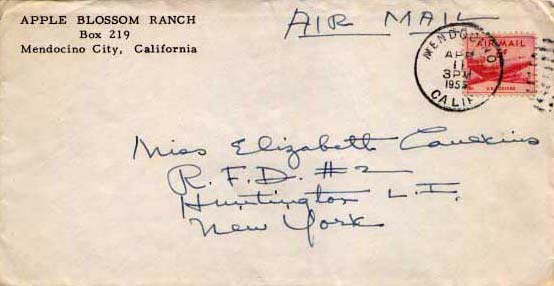 APPLE BLOSSOM RANCH
Box 219
Mendocino City, California
AIR MAIL
MENDOCINO
APR
11
3PM
1955
CALIF
AIRMAIL
Miss Elizabeth Caulkins
R.F.D. #2
Huntington L.I.
New York